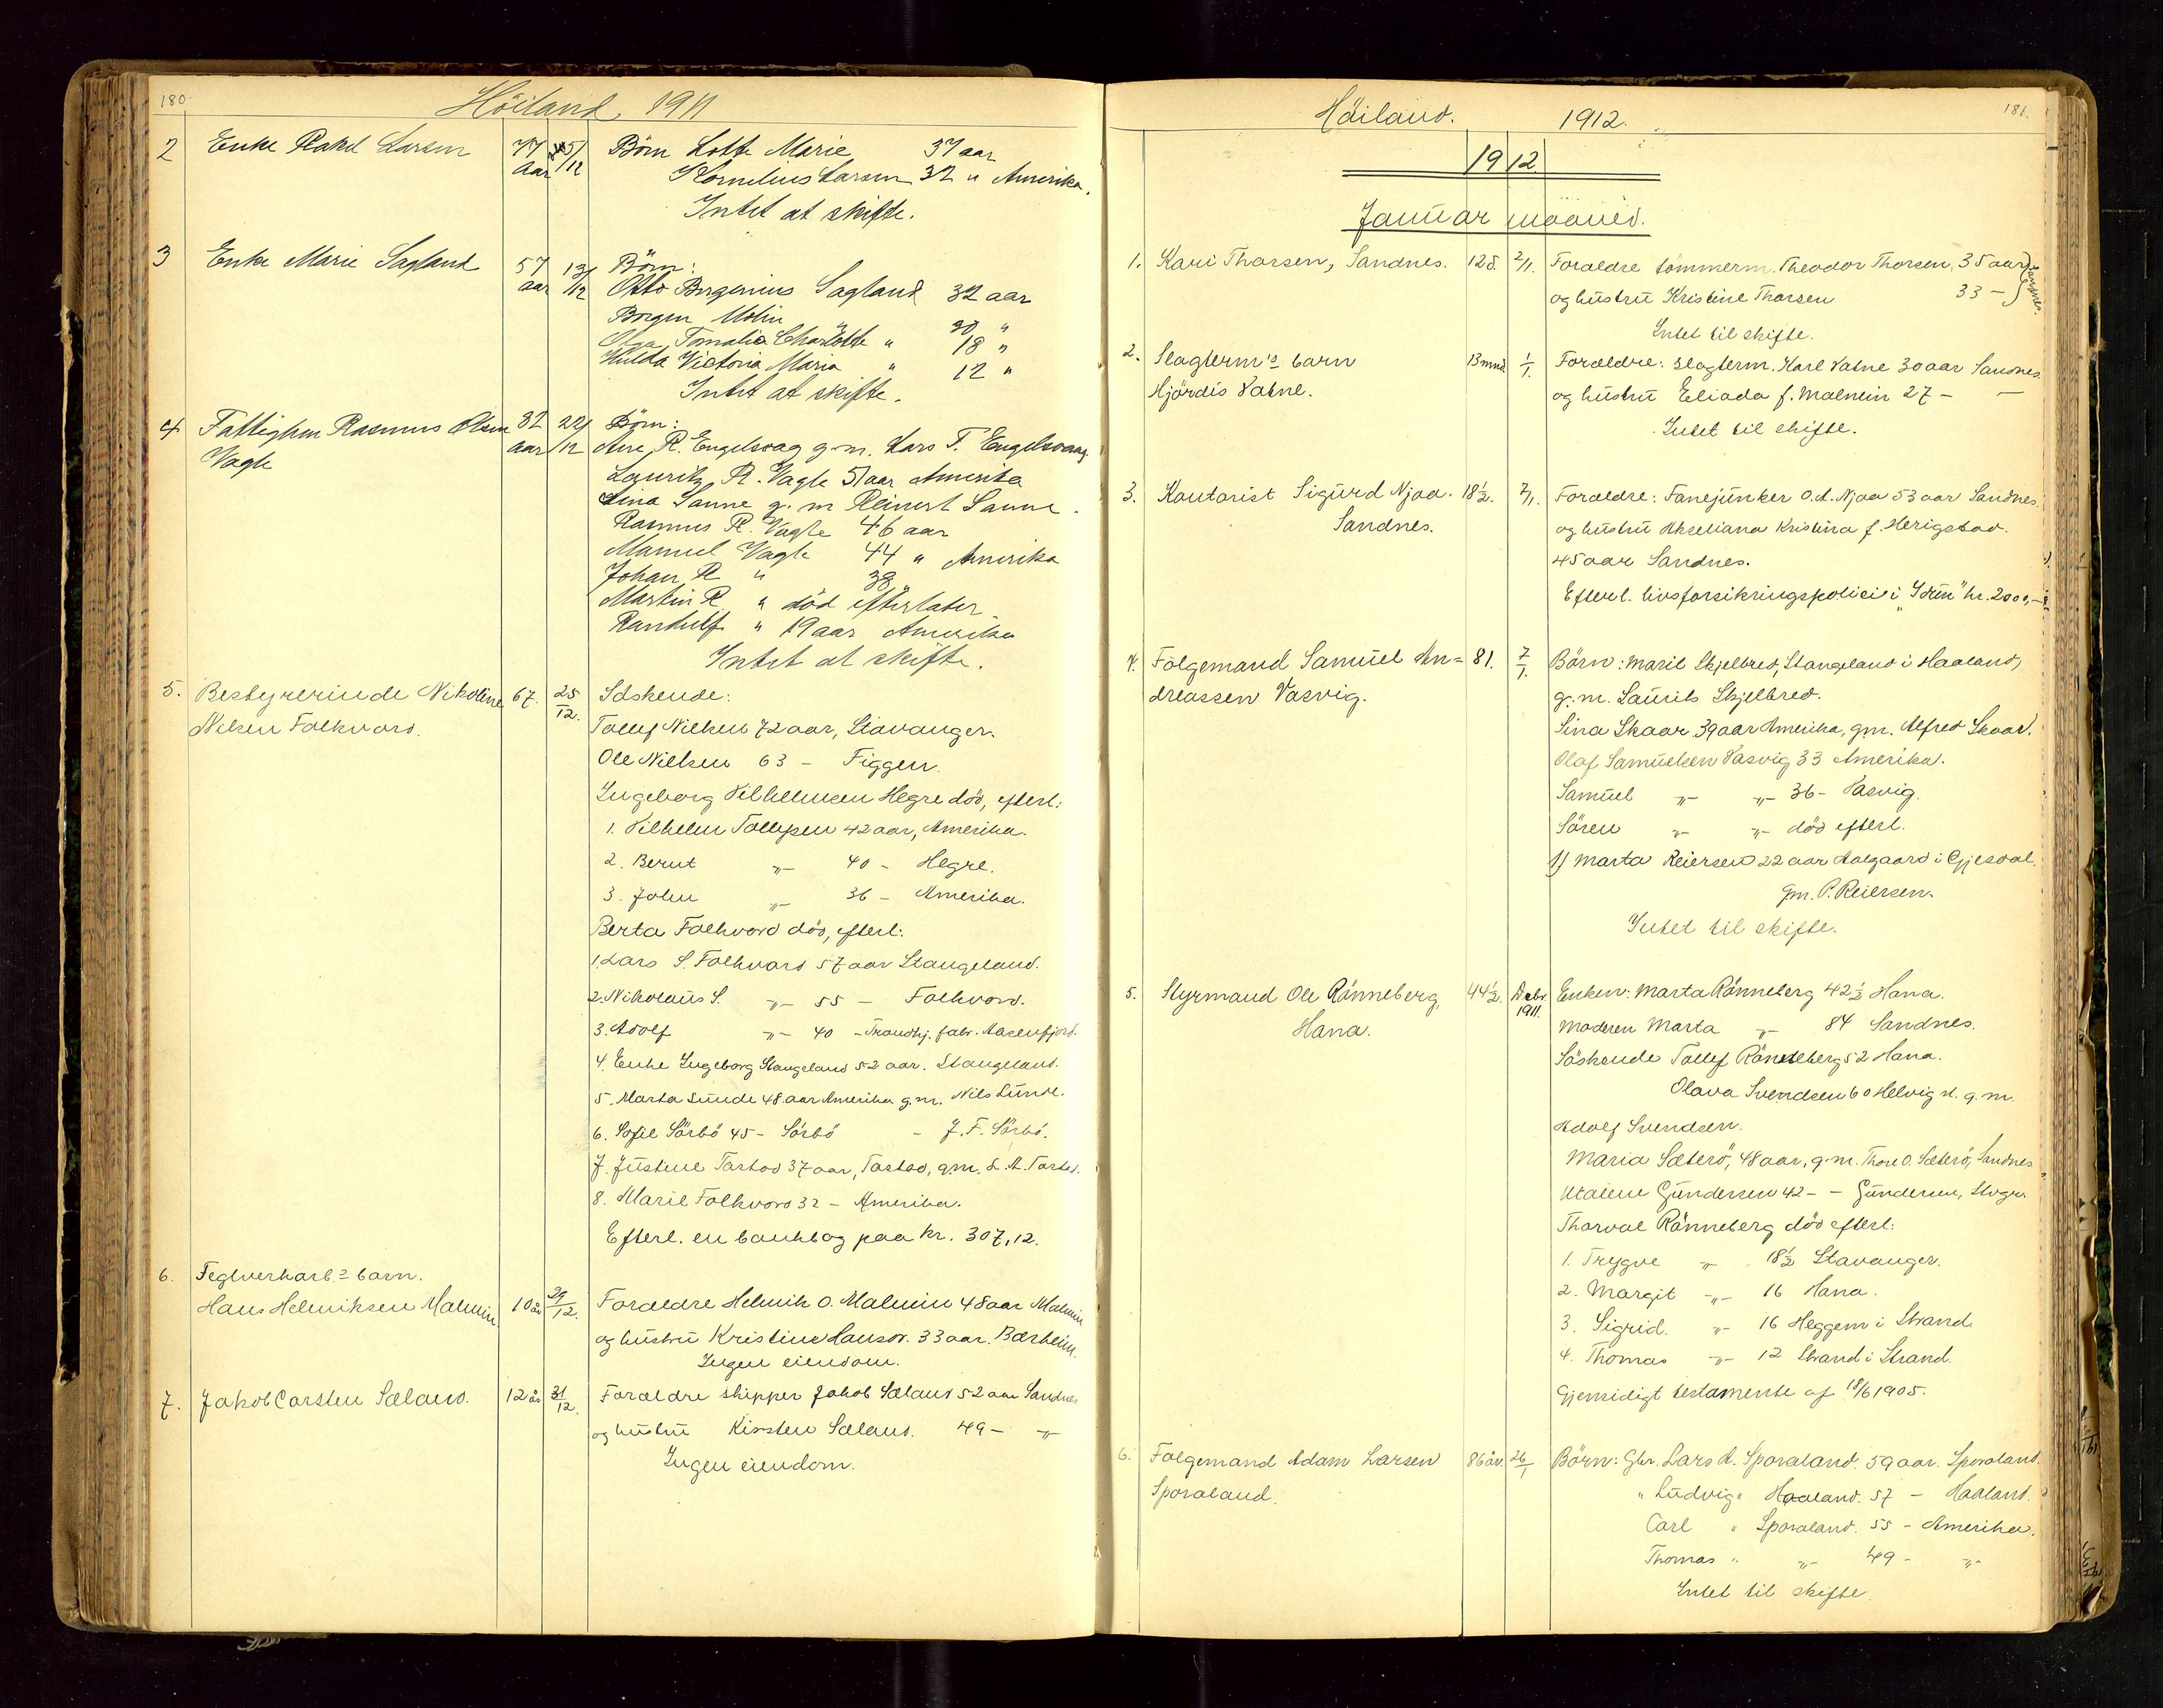 180
Höiland, 1911
2 Enke Rakel Larsen 77 aar 5/12 Börn Lotte Marie 37 aar
Kornelius Larsen 32 " Amerika.
Intet at skifte.
3 Enke Marie Sagland 57 aar 13/12 Börn:
Otto Bergenius Sagland 32 aar
Borgen Molin " 20 "
Olga Tomalia Charlotte " 18 "
Hulda Victoria Maria " 12 "
Intet at skifte.
4 Fattiglem Rasmus Olsen 82 22/ Börn:
Vagle aar 12 Ane R. Engelsvag g.m. Lars T. Engelsvaag.
Lauritz R. Vagle 51 aar Amerika
Lina Sanne g.m Reinert Sanne.
Rasmus R. Vagle 46 aar
Manuel Vagle 44 " Amerika
Johan R " 38 "
Martin R. " död efterlater
Randulf " 19 aar Amerika
Intet at skifte.
5. Bestyrerinde Nikoline 67. 25/12. Söskende:
Nilsen Folkvord. Tollef Nielsen 72 aar, Stavanger.
Ole Nielsen 63 - Figgen.
Ingeborg Vilhelmsen Hegre död, efterl:
1. Vilhelm Tollefsen 42 aar, Amerika.
2. Bernt -"- 40 - Hegre.
3. John -"- 36 - Amerika.
Berta Folkvord död, efterl:
1. Lars S. Folkvord 57 aar Stangeland.
2. Nikolaus S. -"- 55 - Folkvord.
3. Adolf -"- 40 - Trondhj. fabr. Aasenfjord.
4. Enke Ingeborg Stangeland 52 aar. Stangeland.
5. Marta Lunde 48 aar Amerika g.m. Nils Lunde.
6. Sofie Sörbö 45 - Sörbö - J. F. Sörbö.
7. Justine Tastad 37 aar, Tastad, g.m. L. A. Tastad.
8. Marie Folkvord 32 - Amerika.
Efterl. en bankbog paa kr. 307,12.
6. Teglverkarb.s barn.
Hans Helmiksen Malmin 10 år 29/12. Foraeldre Helmik O. Malmin 48 aar Malmin
og hustru Kristine Hansdr. 33 aar. Bærheim.
Ingen eiendom.
7. Jakob Carsten Sæland. 12 år 31/12. Forældre skipper Jakob Sæland 52 aar Sandnes
og hustru Kirsten Sæland. 49 - -"-
Ingen eiendom.
181.
Höiland. 1912.
1912
Januar maaned.
1. Kari Thorsen, Sandnes. 12 d. 2/1. Foraeldre tömmerm. Theodor Thorsen, 35 aar } Sandnes.
og hustru Kristine Thorsen 33 -
Intet til skifte.
2. Slagterm's barn 13 mnd. 1/1. Foraeldre: slagterm. Karl Vatne 30 aar Sandnes.
Hjördis Vatne. og hustru Eliada f. Malmin 27 - -
Intet til skifte.
3. Kontorist Sigurd Njaa. 18½. 7/1. Foraeldre: Fanejunker O. A. Njaa 53 aar Sandnes.
Sandnes. og hustru Akseliana Kristina f. Herigstad.
45 aar Sandnes.
Efterl. livsforsikringspolice i "Idun" kr. 2000,-
4. Fölgemand Samuel An= 81. 7/1. Börn: Marit Skjelbred, Stangeland i Haaland,
dreassen Vasvig. g.m. Laurits Skjelbred.
Sina Skaar 39 aar Amerika, g.m. Alfred Skaar.
Olaf Samuelsen Vasvig 33 Amerika.
Samuel -"- -"- 36 - Vasvig.
Sören -"- -"- död efterl.
1) Marta Reiersen 22 aar Aalgaard i Gjesdal.
gm. P. Reiersen.
Intet til skifte.
5. Styrmand Ole Rönneberg, 44½. Debr. 1911. Enken: Marta Rönneberg 42½ Hana.
Hana. Moderen Marta -"- 84 Sandnes.
Söskende Tollef Rönneberg 52 Hana.
Olava Svendsen 60 Helvig st. g.m.
Adolf Svendsen.
Maria Sæterö, 48 aar, g.m. Thore O. Sæterö, Sandnes
Utaline Gundersen 42 - - Gundersen, Stvgr.
Thorval Rönneberg död efterl:
1. Trygve -"- 18½ Stavanger.
2. Margit -"- 16 Hana.
3. Sigrid. -"- 16 Heggem i Strand.
4. Thomas -"- 12 Strand i Strand.
Gjensidigt testamente af 18/6 1905.
6. Fölgemand Adam Larsen 86 år. 26/1 Börn: Gbr. Lars A. Sporaland. 59 aar. Sporaland.
Sporaland. " Ludvig " Haaland. 57 - Haaland.
Carl " Sporaland. 55 - Amerika.
Thomas " -"- 49 - -"-
Intet til skifte.